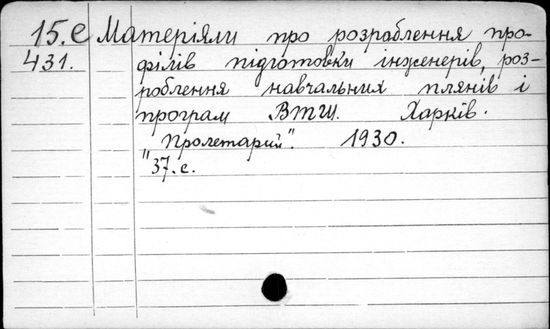 15.е Матеріяли про розраблення про-
431. філів підготовки інженерів, роз-
роблення навчальних плянів і
програм ВТШ. Харків.
"Пролетарий". 1930.
37.с.